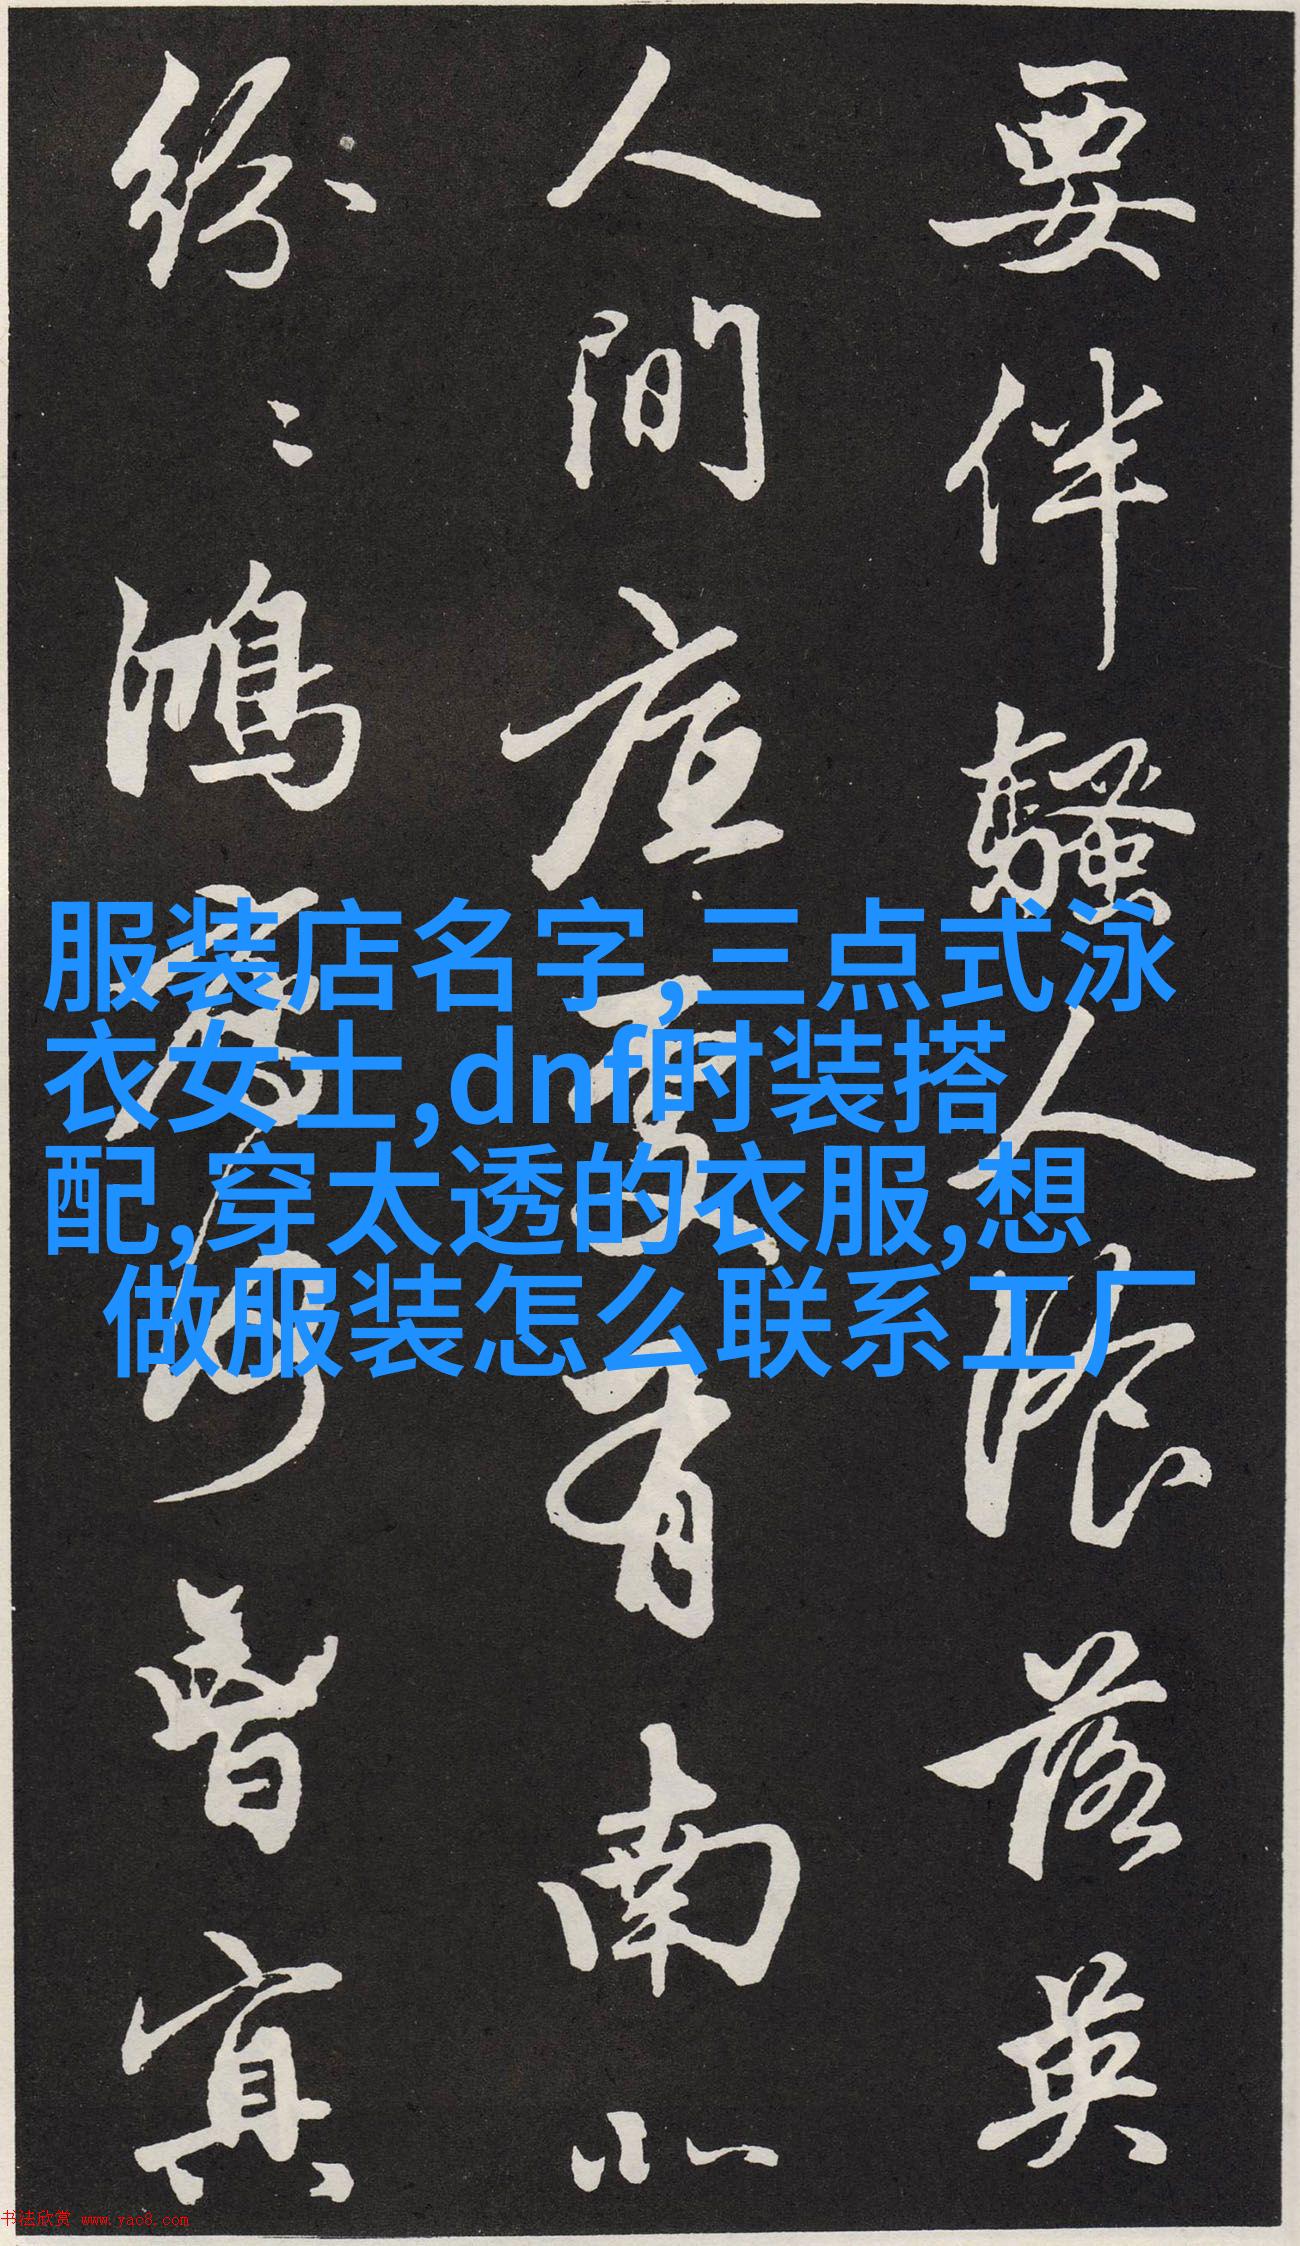 要伴骚人餐落英
人間
有南北
紛〻鴻
何曾冥
服装店名字,三点式泳
衣女士,dnf时装搭
配,穿太透的衣服,想
做服装怎么联系工厂
书法欣赏 www.yac8.com